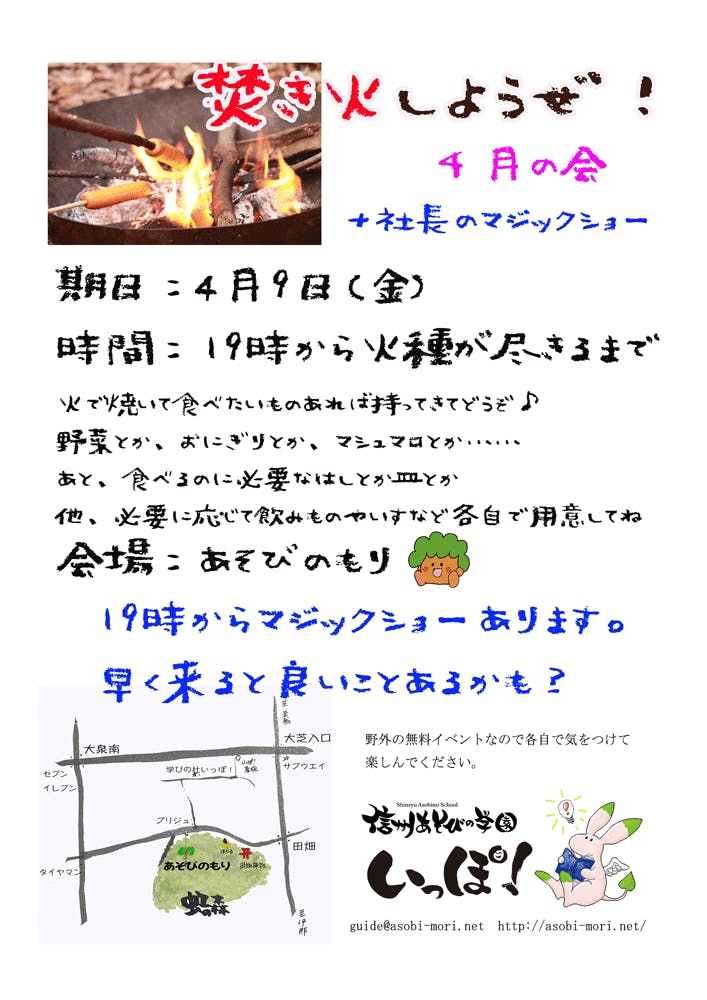 焚き火しようぜ！
4月の会
+社長のマジックショー
期日：4月9日（金）
時間：19時から火種が尽きるまで
火で焼いて食べたいものあれば持ってきてどうぞ♪
野菜とか、おにぎりとか、マシュマロとか……
あと、食べるのに必要なはしとか皿とか
他、必要に応じて飲みものやいすなど各自で用意してね
会場：あそびのもり
19時からマジックショーあります。
早く来ると良いことあるかも？
大泉南
大芝入口
セブン
イレブン
学びの杜いっぽ！
サブウエイ
ブリジュ
田畑
あそびのもり
タイヤマン
蛇の森
至伊那
野外の無料イベントなので各自で気をつけて
楽しんでください。
Shinsyu Asobino School
信州あそびの学園
いっぽ！
guide@asobi-mori.net http://asobi-mori.net/